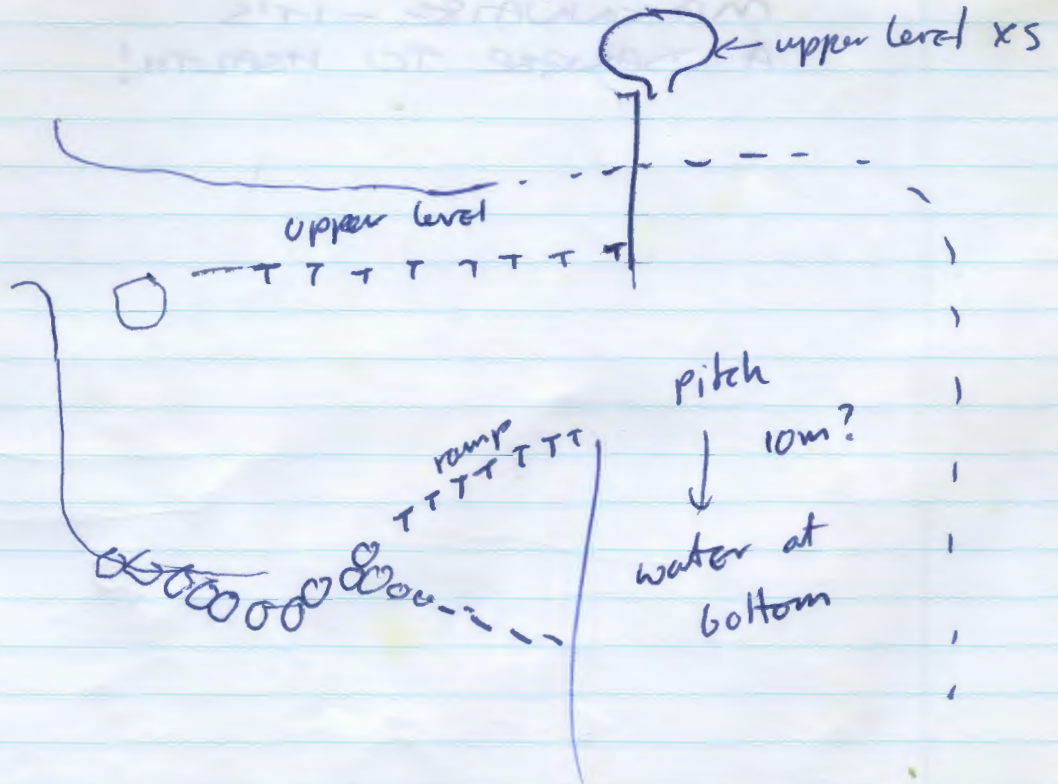 upper level xs
upper level
pitch
10m?
ramp
water at
bottom